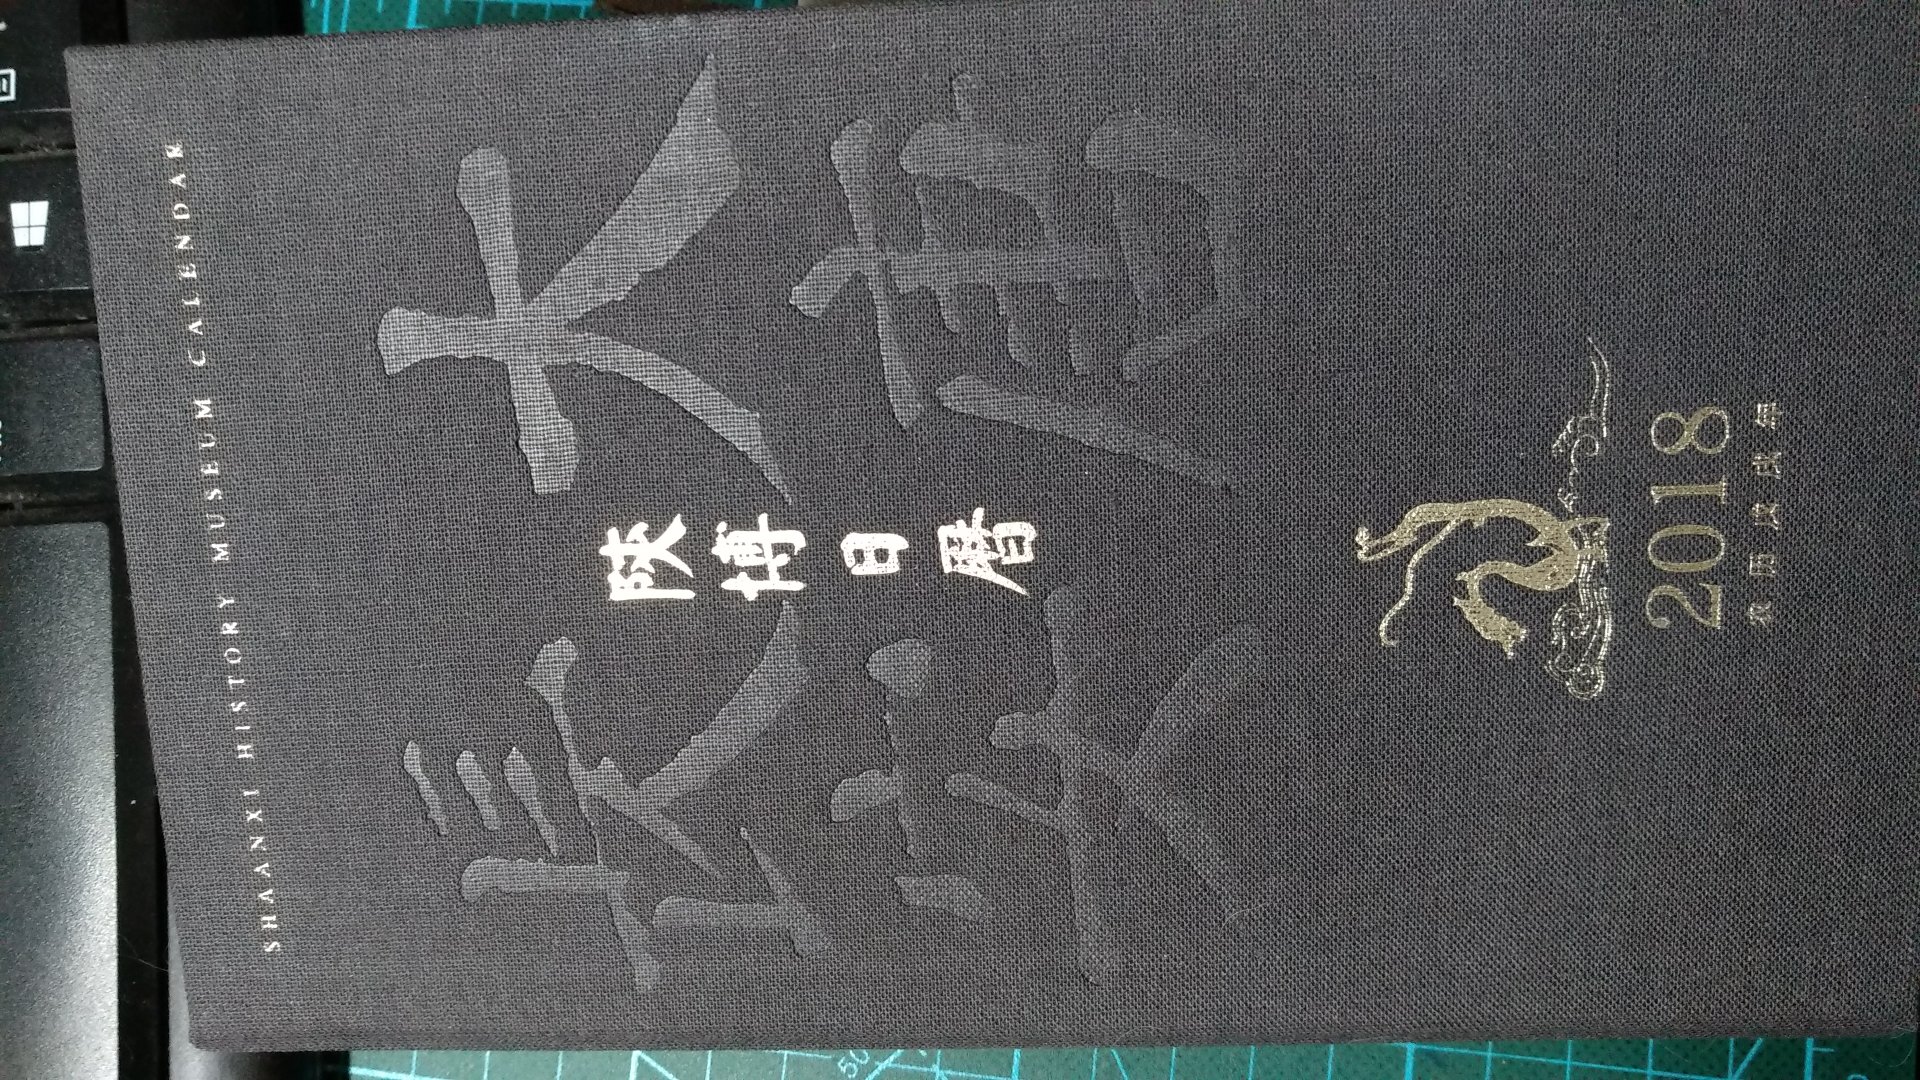 SHAANXI HISTORY MUSEUM CALENDAR
大唐
長安
陕博日曆
2018
农历戊戌年